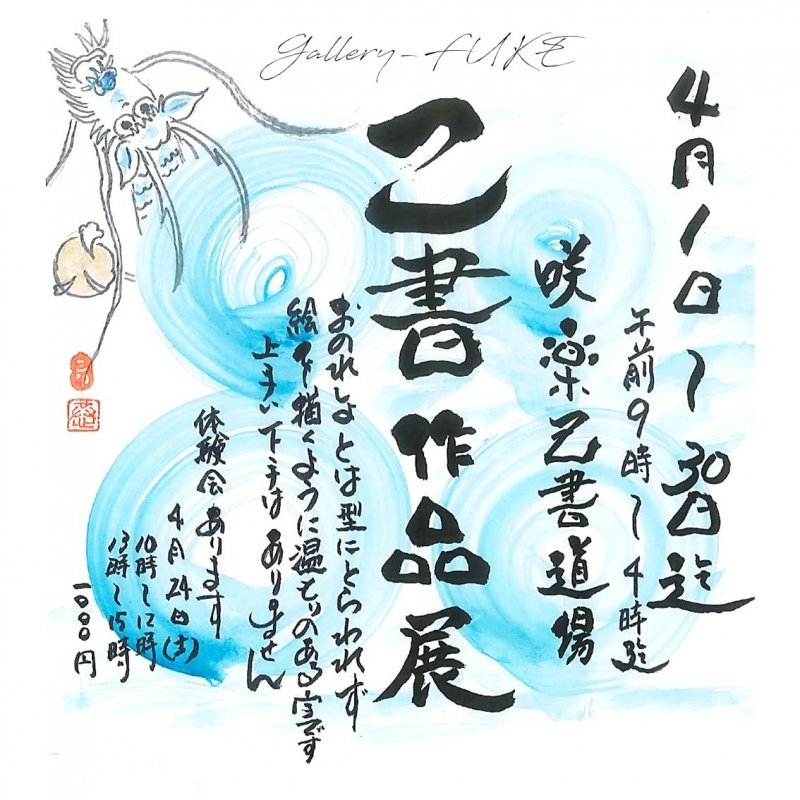 gallery-FUKE
4月1日〜30日迄
午前9時〜4時迄
咲楽己書道場
己書作品展
おのれしょとは型にとらわれず
絵を描くように温もりのある字です
上手い下手はありません
体験会あります
4月24日(土)
10時〜12時
13時〜15時
一〇〇〇円